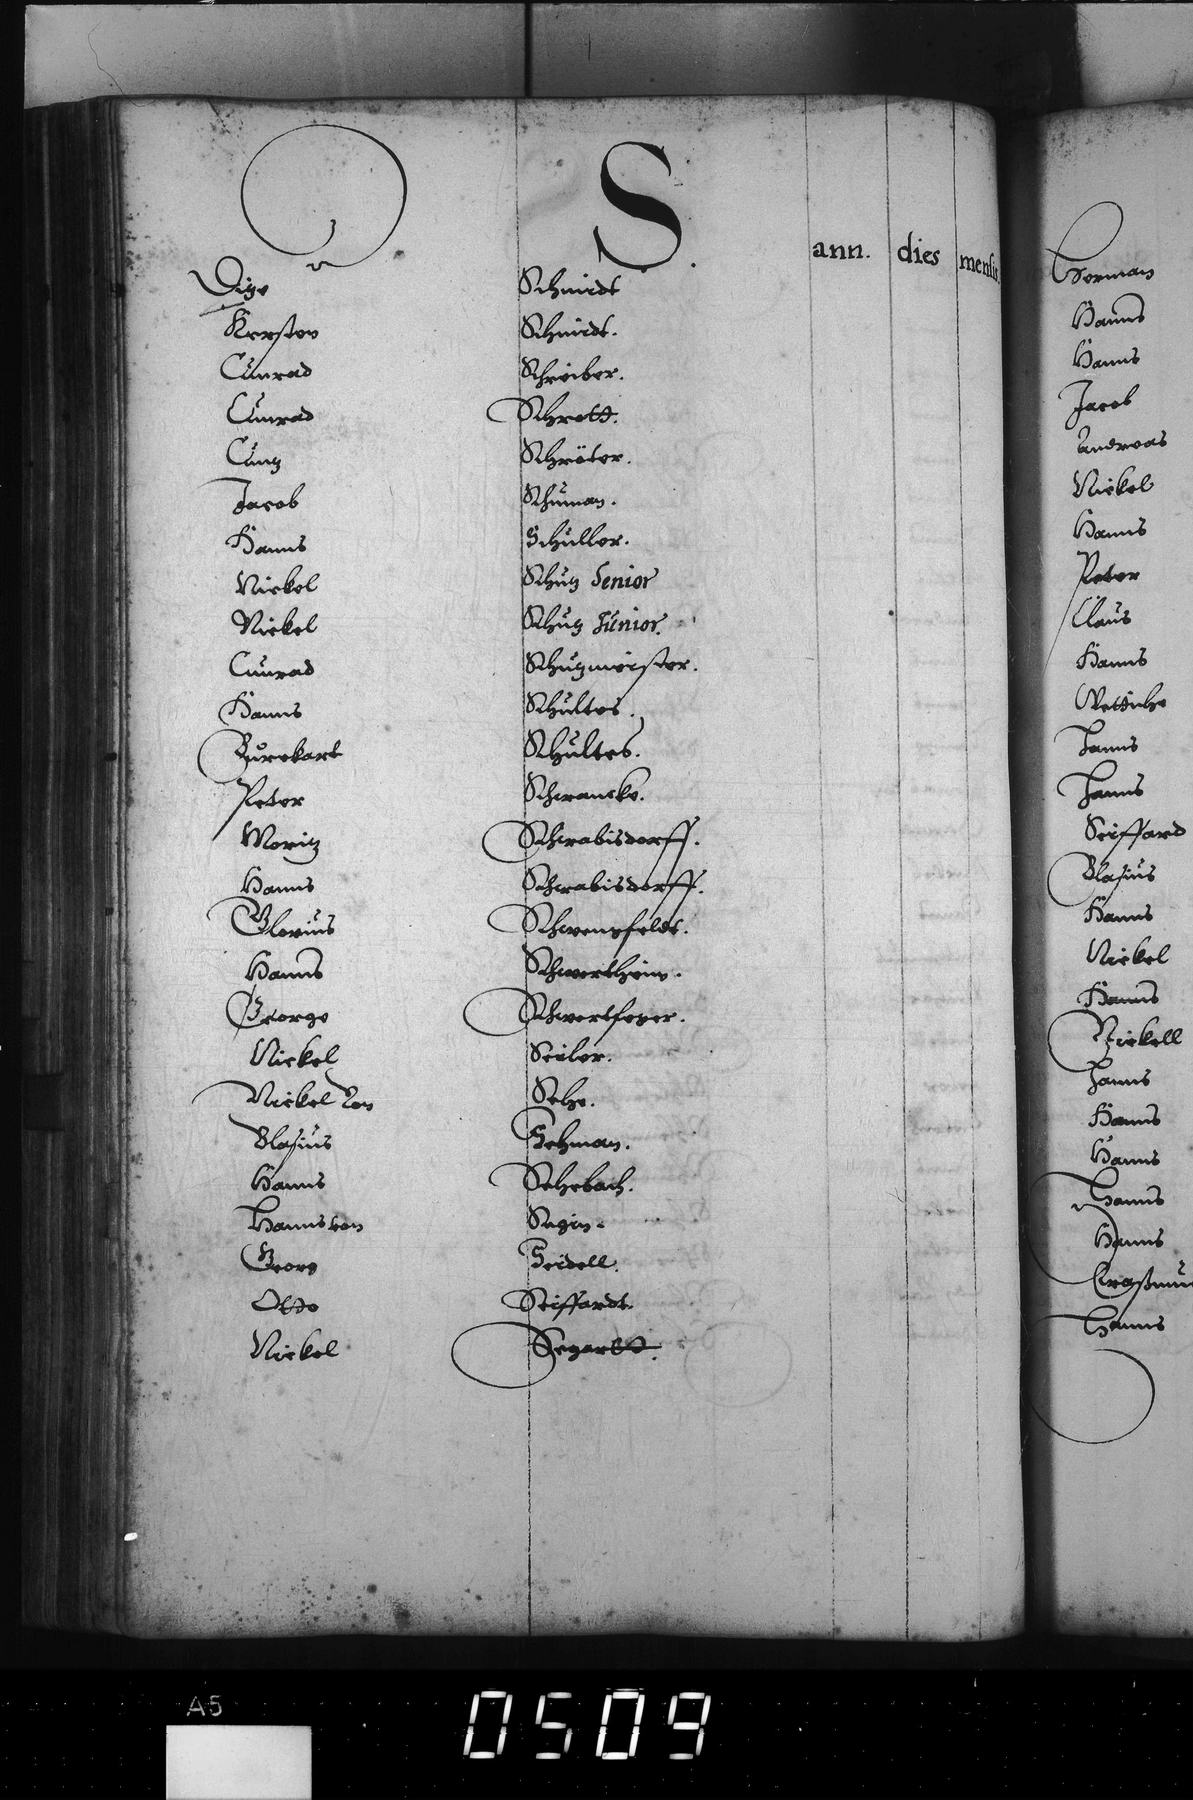 S.
ann. dies mensis.
Schmidt
Kersten Schmidt.
Cunrad Schreiber.
Cunrad Schrott.
Cuntz Schröter.
Jacob Schuman.
Hanns Schuller.
Nickel Schutz Senior
Nickel Schutz Junior.
Cunrad Schutzmeister.
Hanns Schultes.
Burckart Schultes.
Peter Schwancke.
Moritz Schwabisdorff.
Hanns Schwabisdorff.
Glorius
Hanns Schwertheim.
George Schwertfeger.
Nickel Seiler.
Nickel von Sehe.
Blasius Sehman.
Hanns Sehebach.
Hanns von
Georg Seidell.
Otto Seiffardt.
Nickel Segardt.
Herman
Hanns
Hanns
Jacob
Andreas
Nickel
Hanns
Peter
Claus
Hanns
Hanns
Hanns
Seiffard
Blasius
Hanns
Nickel
Hanns
Nickell
Hanns
Hanns
Hanns
Hanns
Hanns
Hanns
A5
0509